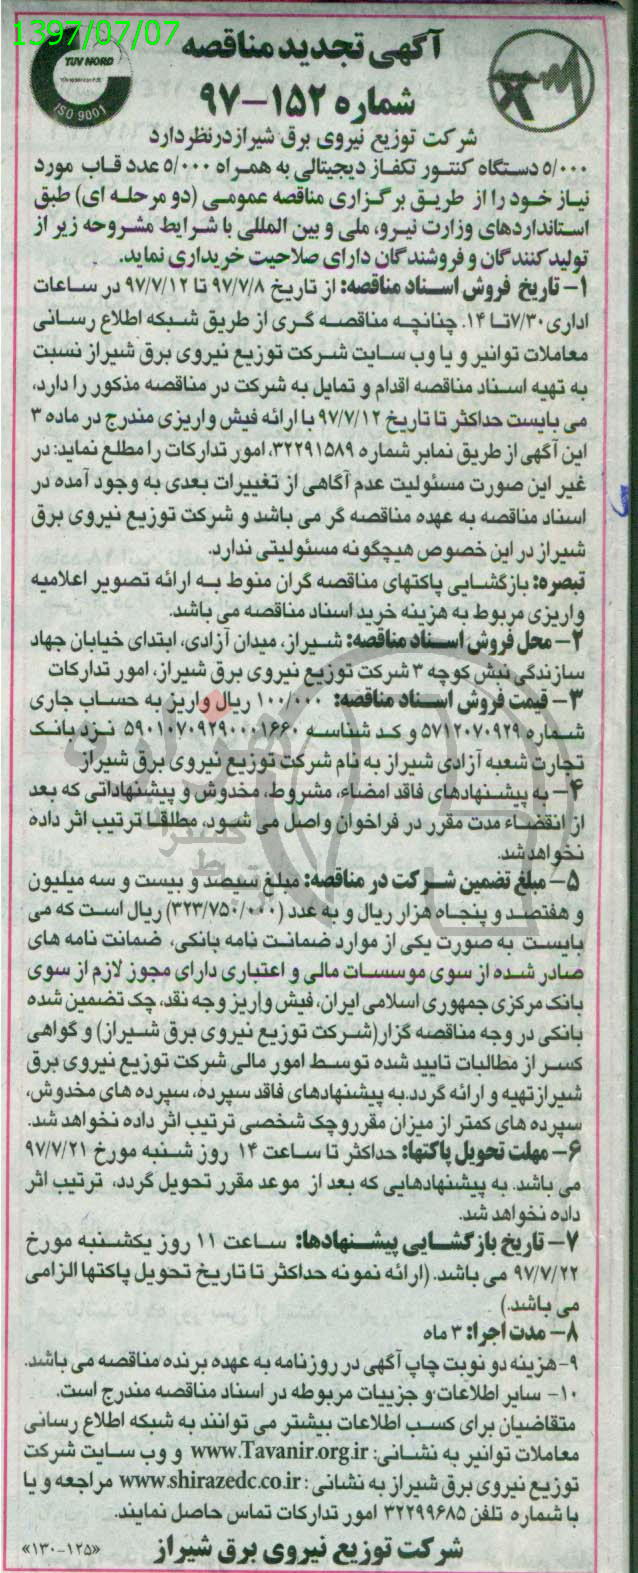 1397/07/07
آگهی تجدید مناقصه
شماره ۱۵۲-۹۷
TUV NORD
ISO 9001
شرکت توزیع نیروی برق شیراز در نظر دارد
۵/۰۰۰ دستگاه کنتور تکفاز دیجیتالی به همراه ۵/۰۰۰ عدد قاب مورد
نیاز خود را از طریق برگزاری مناقصه عمومی (دو مرحله ای) طبق
استانداردهای وزارت نیرو، ملی و بین المللی با شرایط مشروحه زیر از
تولید کنندگان و فروشندگان دارای صلاحیت خریداری نماید.
۱- تاریخ فروش اسناد مناقصه: از تاریخ ۹۷/۷/۸ تا ۹۷/۷/۱۲ در ساعات
اداری ۷/۳۰ تا ۱۴. چنانچه مناقصه گری از طریق شبکه اطلاع رسانی
معاملات توانیر و یا وب سایت شرکت توزیع نیروی برق شیراز نسبت
به تهیه اسناد مناقصه اقدام و تمایل به شرکت در مناقصه مذکور را دارد،
می بایست حداکثر تا تاریخ ۹۷/۷/۱۲ با ارائه فیش واریزی مندرج در ماده ۳
این آگهی از طریق نمابر شماره ۳۲۲۹۱۵۸۹، امور تدارکات را مطلع نماید: در
غیر این صورت مسئولیت عدم آگاهی از تغییرات بعدی به وجود آمده در
اسناد مناقصه به عهده مناقصه گر می باشد و شرکت توزیع نیروی برق
شیراز در این خصوص هیچگونه مسئولیتی ندارد.
تبصره: بازگشایی پاکتهای مناقصه گران منوط به ارائه تصویر اعلامیه
واریزی مربوط به هزینه خرید اسناد مناقصه می باشد.
۲- محل فروش اسناد مناقصه: شیراز، میدان آزادی، ابتدای خیابان جهاد
سازندگی نبش کوچه ۳ شرکت توزیع نیروی برق شیراز، امور تدارکات
۳- قیمت فروش اسناد مناقصه: ۱۰۰/۰۰۰ ریال واریز به حساب جاری
شماره ۵۷۱۲۰۷۰۹۲۹ و کد شناسه ۵۹۰۱۰۷۰۹۲۹۰۰۰۱۶۶۰ نزد بانک
تجارت شعبه آزادی شیراز به نام شرکت توزیع نیروی برق شیراز
۴- به پیشنهادهای فاقد امضاء، مشروط، مخدوش و پیشنهاداتی که بعد
از انقضاء مدت مقرر در فراخوان واصل می شود، مطلقا ترتیب اثر داده
نخواهد شد.
۵- مبلغ تضمین شرکت در مناقصه: مبلغ سیصد و بیست و سه میلیون
و هفتصد و پنجاه هزار ریال و به عدد (۳۲۳/۷۵۰/۰۰۰) ریال است که می
بایست به صورت یکی از موارد ضمانت نامه بانکی، ضمانت نامه های
صادر شده از سوی موسسات مالی و اعتباری دارای مجوز لازم از سوی
بانک مرکزی جمهوری اسلامی ایران، فیش واریز وجه نقد، چک تضمین شده
بانکی در وجه مناقصه گزار(شرکت توزیع نیروی برق شیراز) و گواهی
کسر از مطالبات تایید شده توسط امور مالی شرکت توزیع نیروی برق
شیراز تهیه و ارائه گردد.به پیشنهادهای فاقد سپرده، سپرده های مخدوش،
سپرده های کمتر از میزان مقرر و چک شخصی ترتیب اثر داده نخواهد شد.
۶- مهلت تحویل پاکتها: حداکثر تا ساعت ۱۴ روز شنبه مورخ ۹۷/۷/۲۱
می باشد. به پیشنهادهایی که بعد از موعد مقرر تحویل گردد، ترتیب اثر
داده نخواهد شد.
۷- تاریخ بازگشایی پیشنهادها: ساعت ۱۱ روز یکشنبه مورخ
۹۷/۷/۲۲ می باشد. (ارائه نمونه حداکثر تا تاریخ تحویل پاکتها الزامی
می باشد.)
۸- مدت اجرا: ۳ ماه
۹- هزینه دو نوبت چاپ آگهی در روزنامه به عهده برنده مناقصه می باشد.
۱۰- سایر اطلاعات و جزییات مربوطه در اسناد مناقصه مندرج است.
متقاضیان برای کسب اطلاعات بیشتر می توانند به شبکه اطلاع رسانی
معاملات توانیر به نشانی: www.Tavanir.org.ir و وب سایت شرکت
توزیع نیروی برق شیراز به نشانی: www.shirazedc.co.ir مراجعه و یا
با شماره تلفن ۳۲۲۹۹۶۸۵ امور تدارکات تماس حاصل نمایند.
شرکت توزیع نیروی برق شیراز
«۱۳۰-۱۲۵»